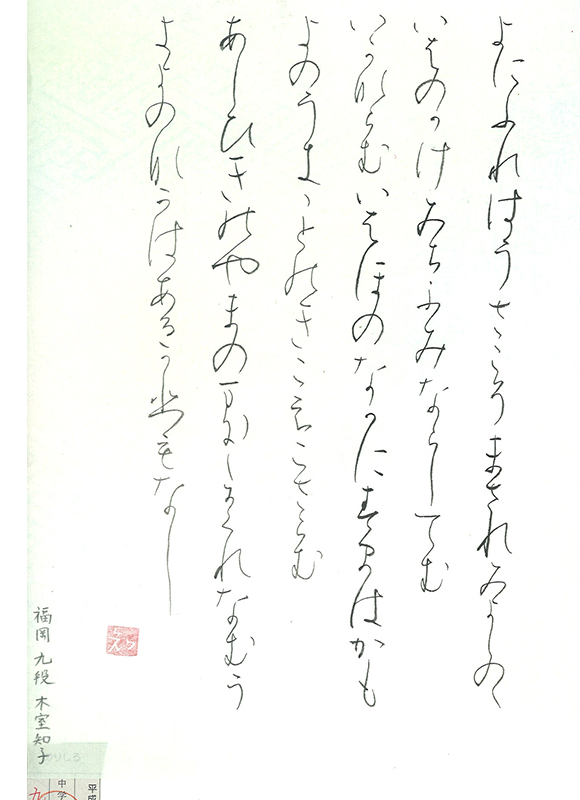 よにふれはうさこそまされみよしのゝ
いはのかけみちふみならしてむ
いかならむいはほのなかにすまはかも
よのうきことのきこえこさらむ
あしひきのやまのまに〱かくれなむう
きよのなかはあるかひもなし
福岡 九段 木室知子
のりしろ
平成
中学
九